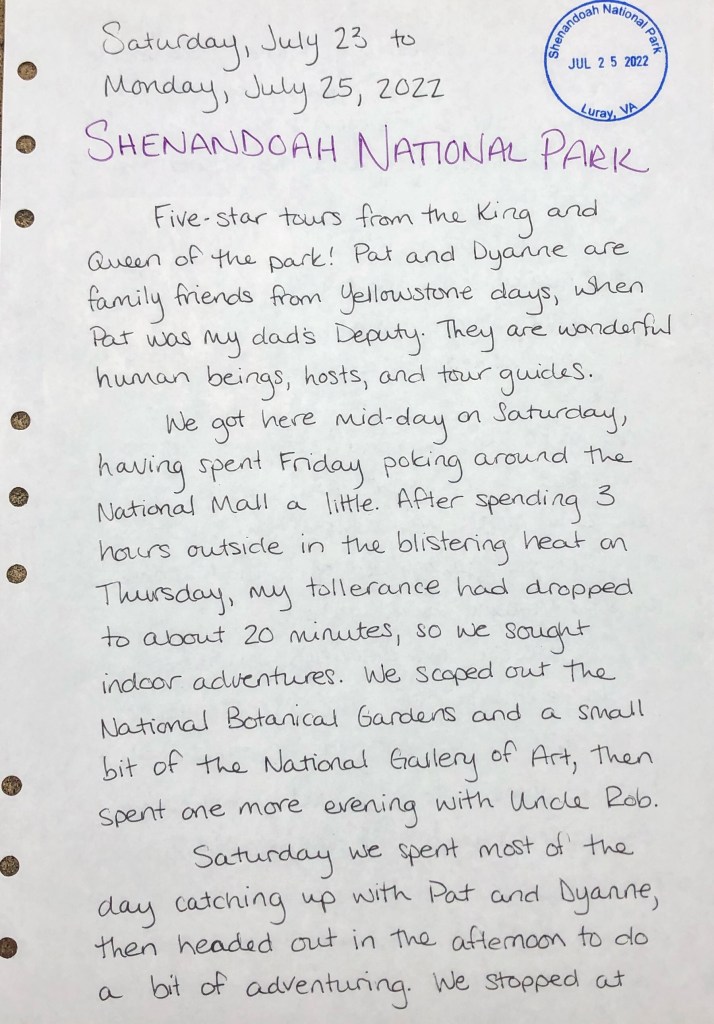 Saturday, July 23 to
Monday, July 25, 2022
Shenandoah National Park
JUL 25 2022
Luray, VA
SHENANDOAH NATIONAL PARK
Five-star tours from the King and
Queen of the park! Pat and Dyanne are
family friends from Yellowstone days, when
Pat was my dad's Deputy. They are wonderful
human beings, hosts, and tour guides.
We got here mid-day on Saturday,
having spent Friday poking around the
National Mall a little. After spending 3
hours outside in the blistering heat on
Thursday, my tollerance had dropped
to about 20 minutes, so we sought
indoor adventures. We scoped out the
National Botanical Gardens and a small
bit of the National Gallery of Art, then
spent one more evening with Uncle Rob.
Saturday we spent most of the
day catching up with Pat and Dyanne,
then headed out in the afternoon to do
a bit of adventuring. We stopped at